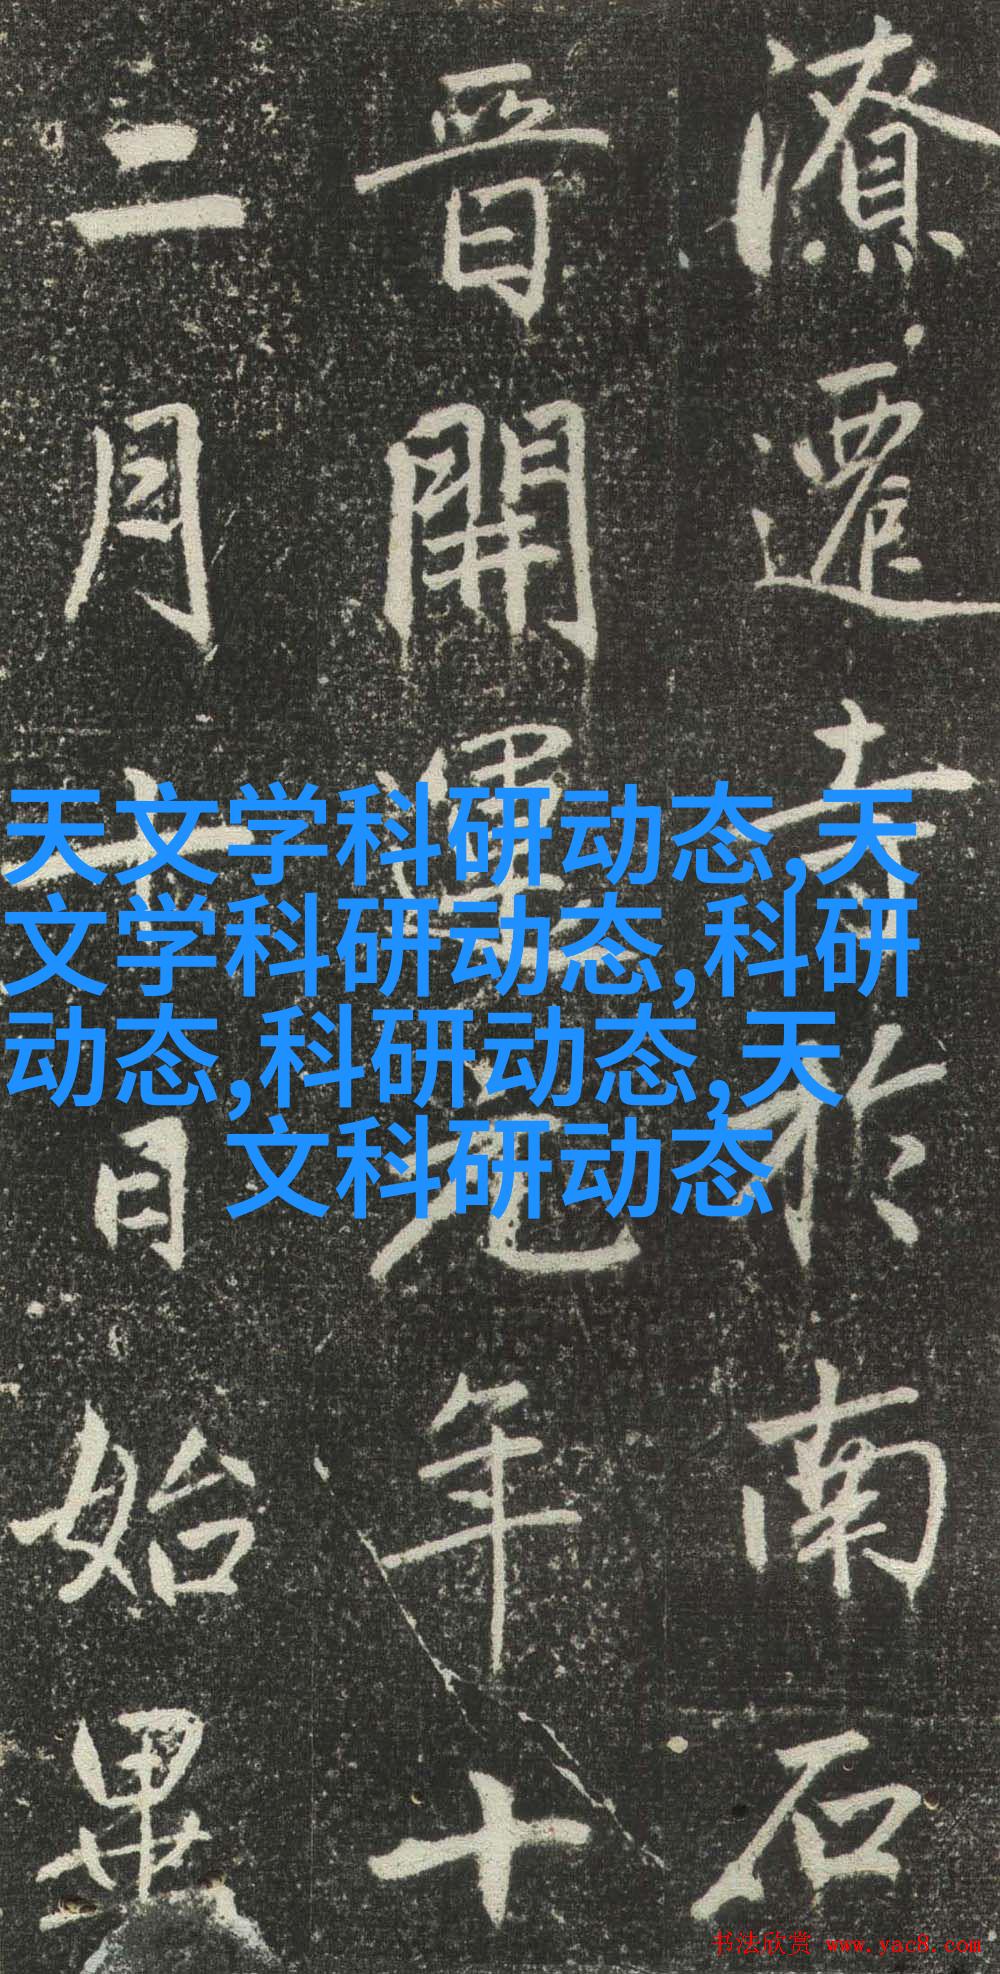 潦遷寺於南石
晉開運元年十
二月十日始畢
天文学科研动态,天
文学科研动态,科研
动态,科研动态,天
文科研动态
书法欣赏 www.yac8.com